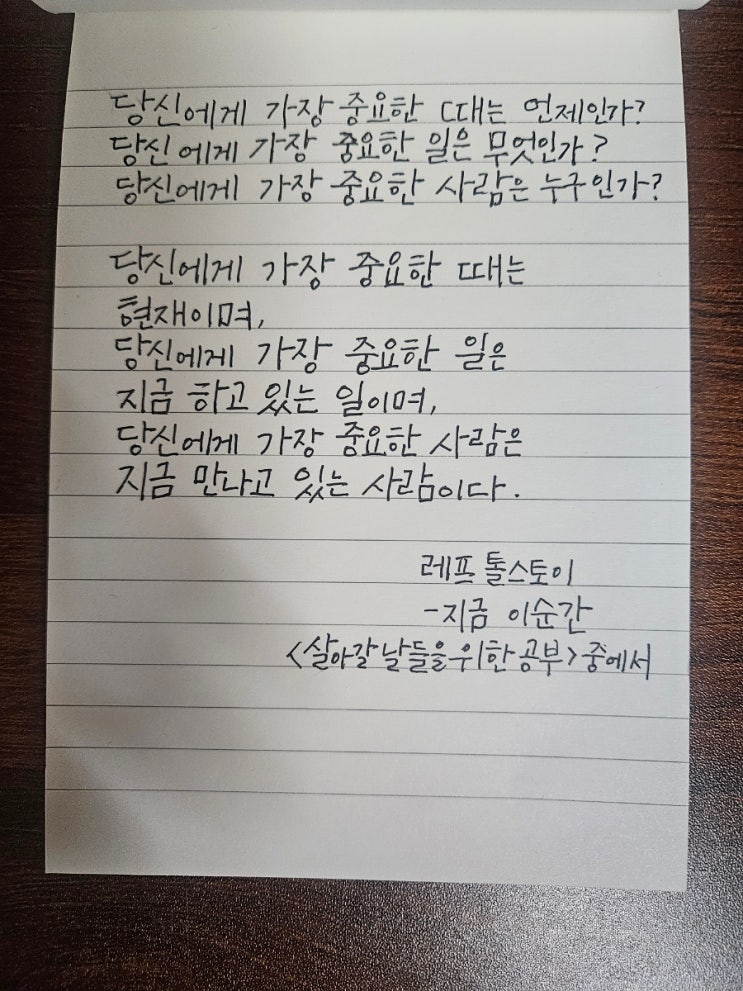 당신에게 가장 중요한 때는 언제인가?
당신에게 가장 중요한 일은 무엇인가?
당신에게 가장 중요한 사람은 누구인가?
당신에게 가장 중요한 때는
현재이며,
당신에게 가장 중요한 일은
지금 하고 있는 일이며,
당신에게 가장 중요한 사람은
지금 만나고 있는 사람이다.
레프 톨스토이
-지금 이순간
<살아갈 날들을 위한 공부> 중에서